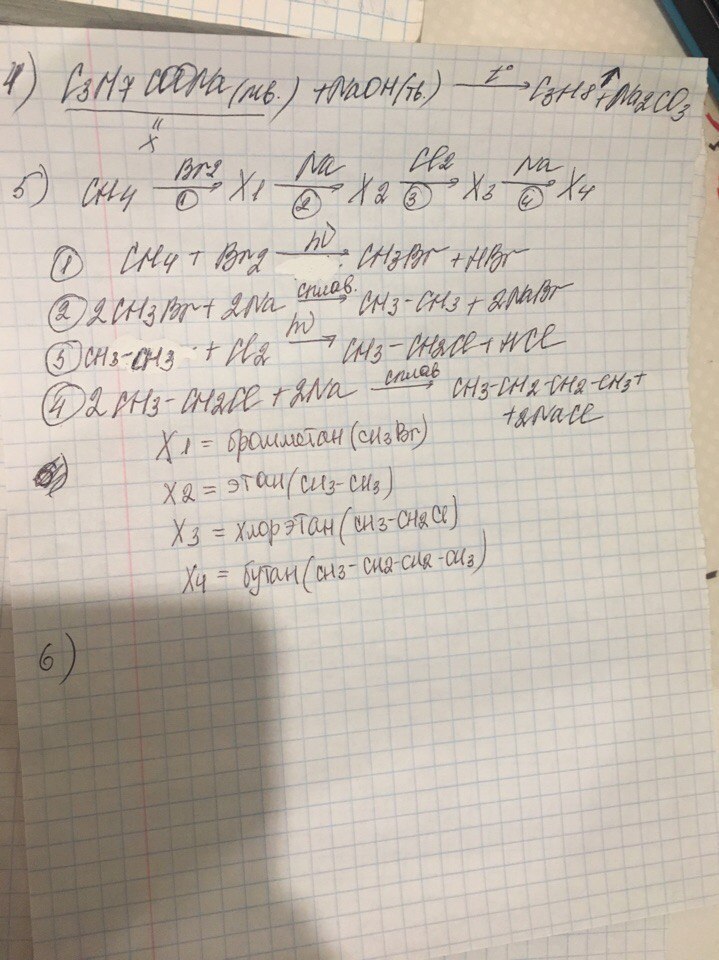 4) C3H7COONa(тв.) + NaOH(тв) t° → C3H8↑ + Na2CO3
"
X
5) CH4 Br2 → ① X1 Na → ② X2 Cl2 → ③ X3 Na → ④ X4
① CH4 + Br2 hν → CH3Br + HBr
② 2CH3Br + 2Na сплав. → CH3-CH3 + 2NaBr
③ CH3-CH3 + Cl2 hν → CH3-CH2Cl + HCl
④ 2CH3-CH2Cl + 2Na сплав → CH3-CH2-CH2-CH3 +
+2NaCl
X1 = бромметан (CH3Br)
X2 = этан (CH3-CH3)
X3 = хлорэтан (CH3-CH2Cl)
X4 = бутан (CH3-CH2-CH2-CH3)
6)